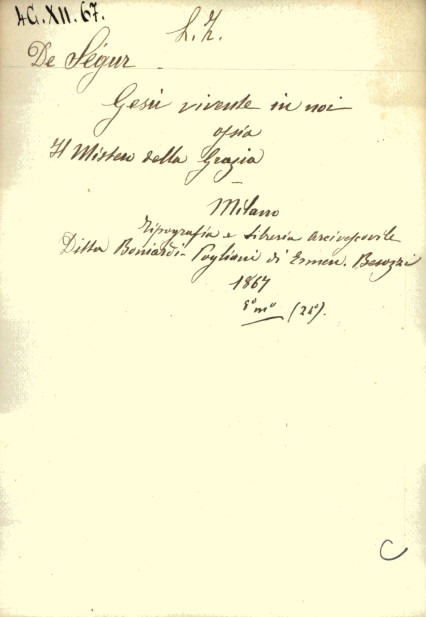 AG.XII.67.
L. Z.
De Ségur
Gesù vivente in noi
ossia
Il Mistero della Grazia
Milano
Tipografia e Libreria Arcivescovile
Ditta Boniardi-Pogliani di Ermen. Besozzi
1867
8º mº (24º).
C